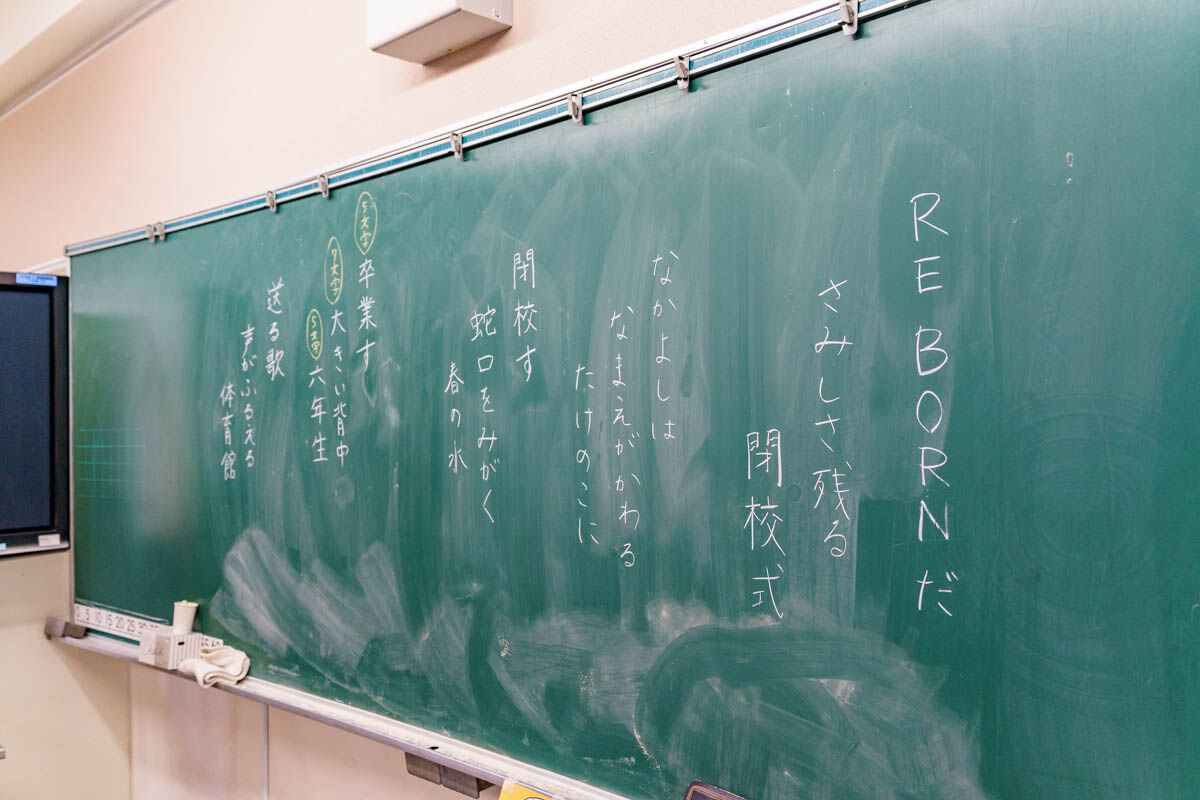 REBORNだ
さみしさ残る
閉校式
なかよしは
なまえがかわる
たけのこに
閉校す
蛇口をみがく
春の水
5文字 卒業す
7文字 大きい背中
5文字 六年生
送る歌
声がふるえる
体育館
0 5 10 15 20 25 30